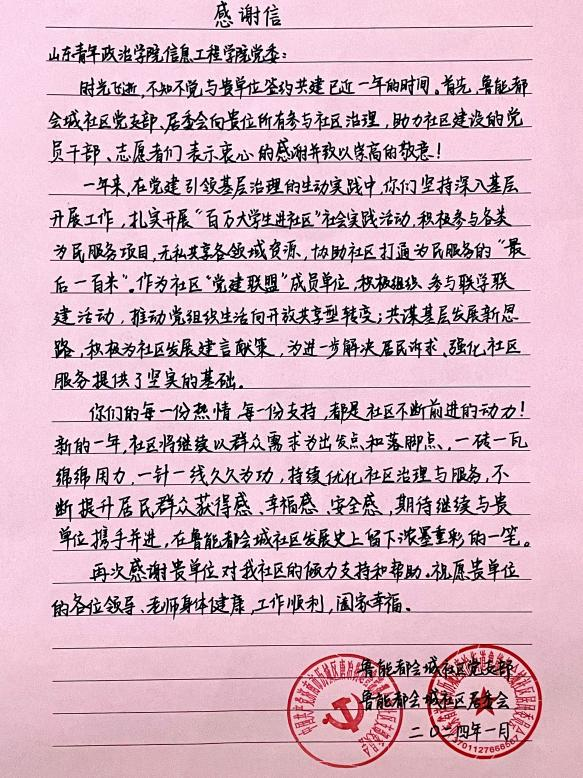 感谢信
山东青年政治学院信息工程学院党委：
时光飞逝，不知不觉与贵单位签约共建已近一年的时间。首先，鲁能都
会城社区党支部、居委会向贵位所有参与社区治理，助力社区建设的党
员干部、志愿者们表示衷心的感谢并致以崇高的敬意！
一年来，在党建引领基层治理的生动实践中，你们坚持深入基层
开展工作，扎实开展“百万大学生进社区”社会实践活动，积极参与各类
为民服务项目，无私共享各领域资源，协助社区打通为民服务的“最
后一百米”。作为社区“党建联盟”成员单位，积极组织、参与联学联
建活动，推动党组织生活向开放共享型转变；共谋基层发展新思
路，积极为社区发展建言献策，为进一步解决居民诉求、强化社区
服务提供了坚实的基础。
你们的每一份热情，每一份支持，都是社区不断前进的动力！
新的一年，社区将继续以群众需求为出发点和落脚点，一砖一瓦
绵绵用力，一针一线久久为功，持续优化社区治理与服务，不
断提升居民群众获得感、幸福感、安全感，期待继续与贵
单位携手并进，在鲁能都会城社区发展史上留下浓墨重彩的一笔。
再次感谢贵单位对我社区的倾力支持和帮助。祝愿贵单位
的各位领导、老师身体健康，工作顺利，阖家幸福。
鲁能都会城社区党支部
鲁能都会城社区居委会
二〇二四年一月